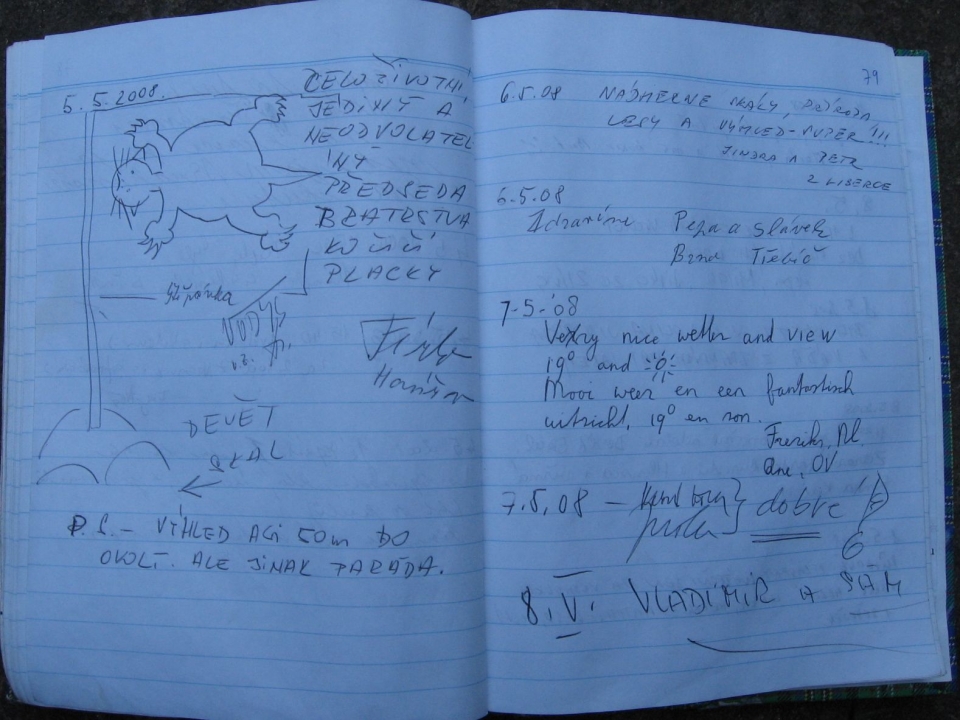 5.5.2008.
CELOŽIVOTNÍ
JEDINÝ A
NEODVOLATEL
NÝ
PŘEDSEDA
BRATRSTVA
KOČIČÍ
PLACKY
DEVĚT
SKAL
P.S. - VÝHLED ASI 50m DO
OKOLÍ. ALE JINAK PARÁDA.
79
6.5.08 NÁDHERNÉ SKÁLY, PŘÍRODA,
LESY A VÝHLED - SUPER!!!
JINDRA A PETR
Z LIBERCE
6.5.08
Zdravíme Pepa a Slávek
Brno Třebíč
7-5-'08
Very nice wetter and view
19° and
Mooi weer en een fantastisch
uitzicht, 19° en zon.
NL
OV
7.5.08 - dobré
6
8.V. VLADIMÍR A SÁM